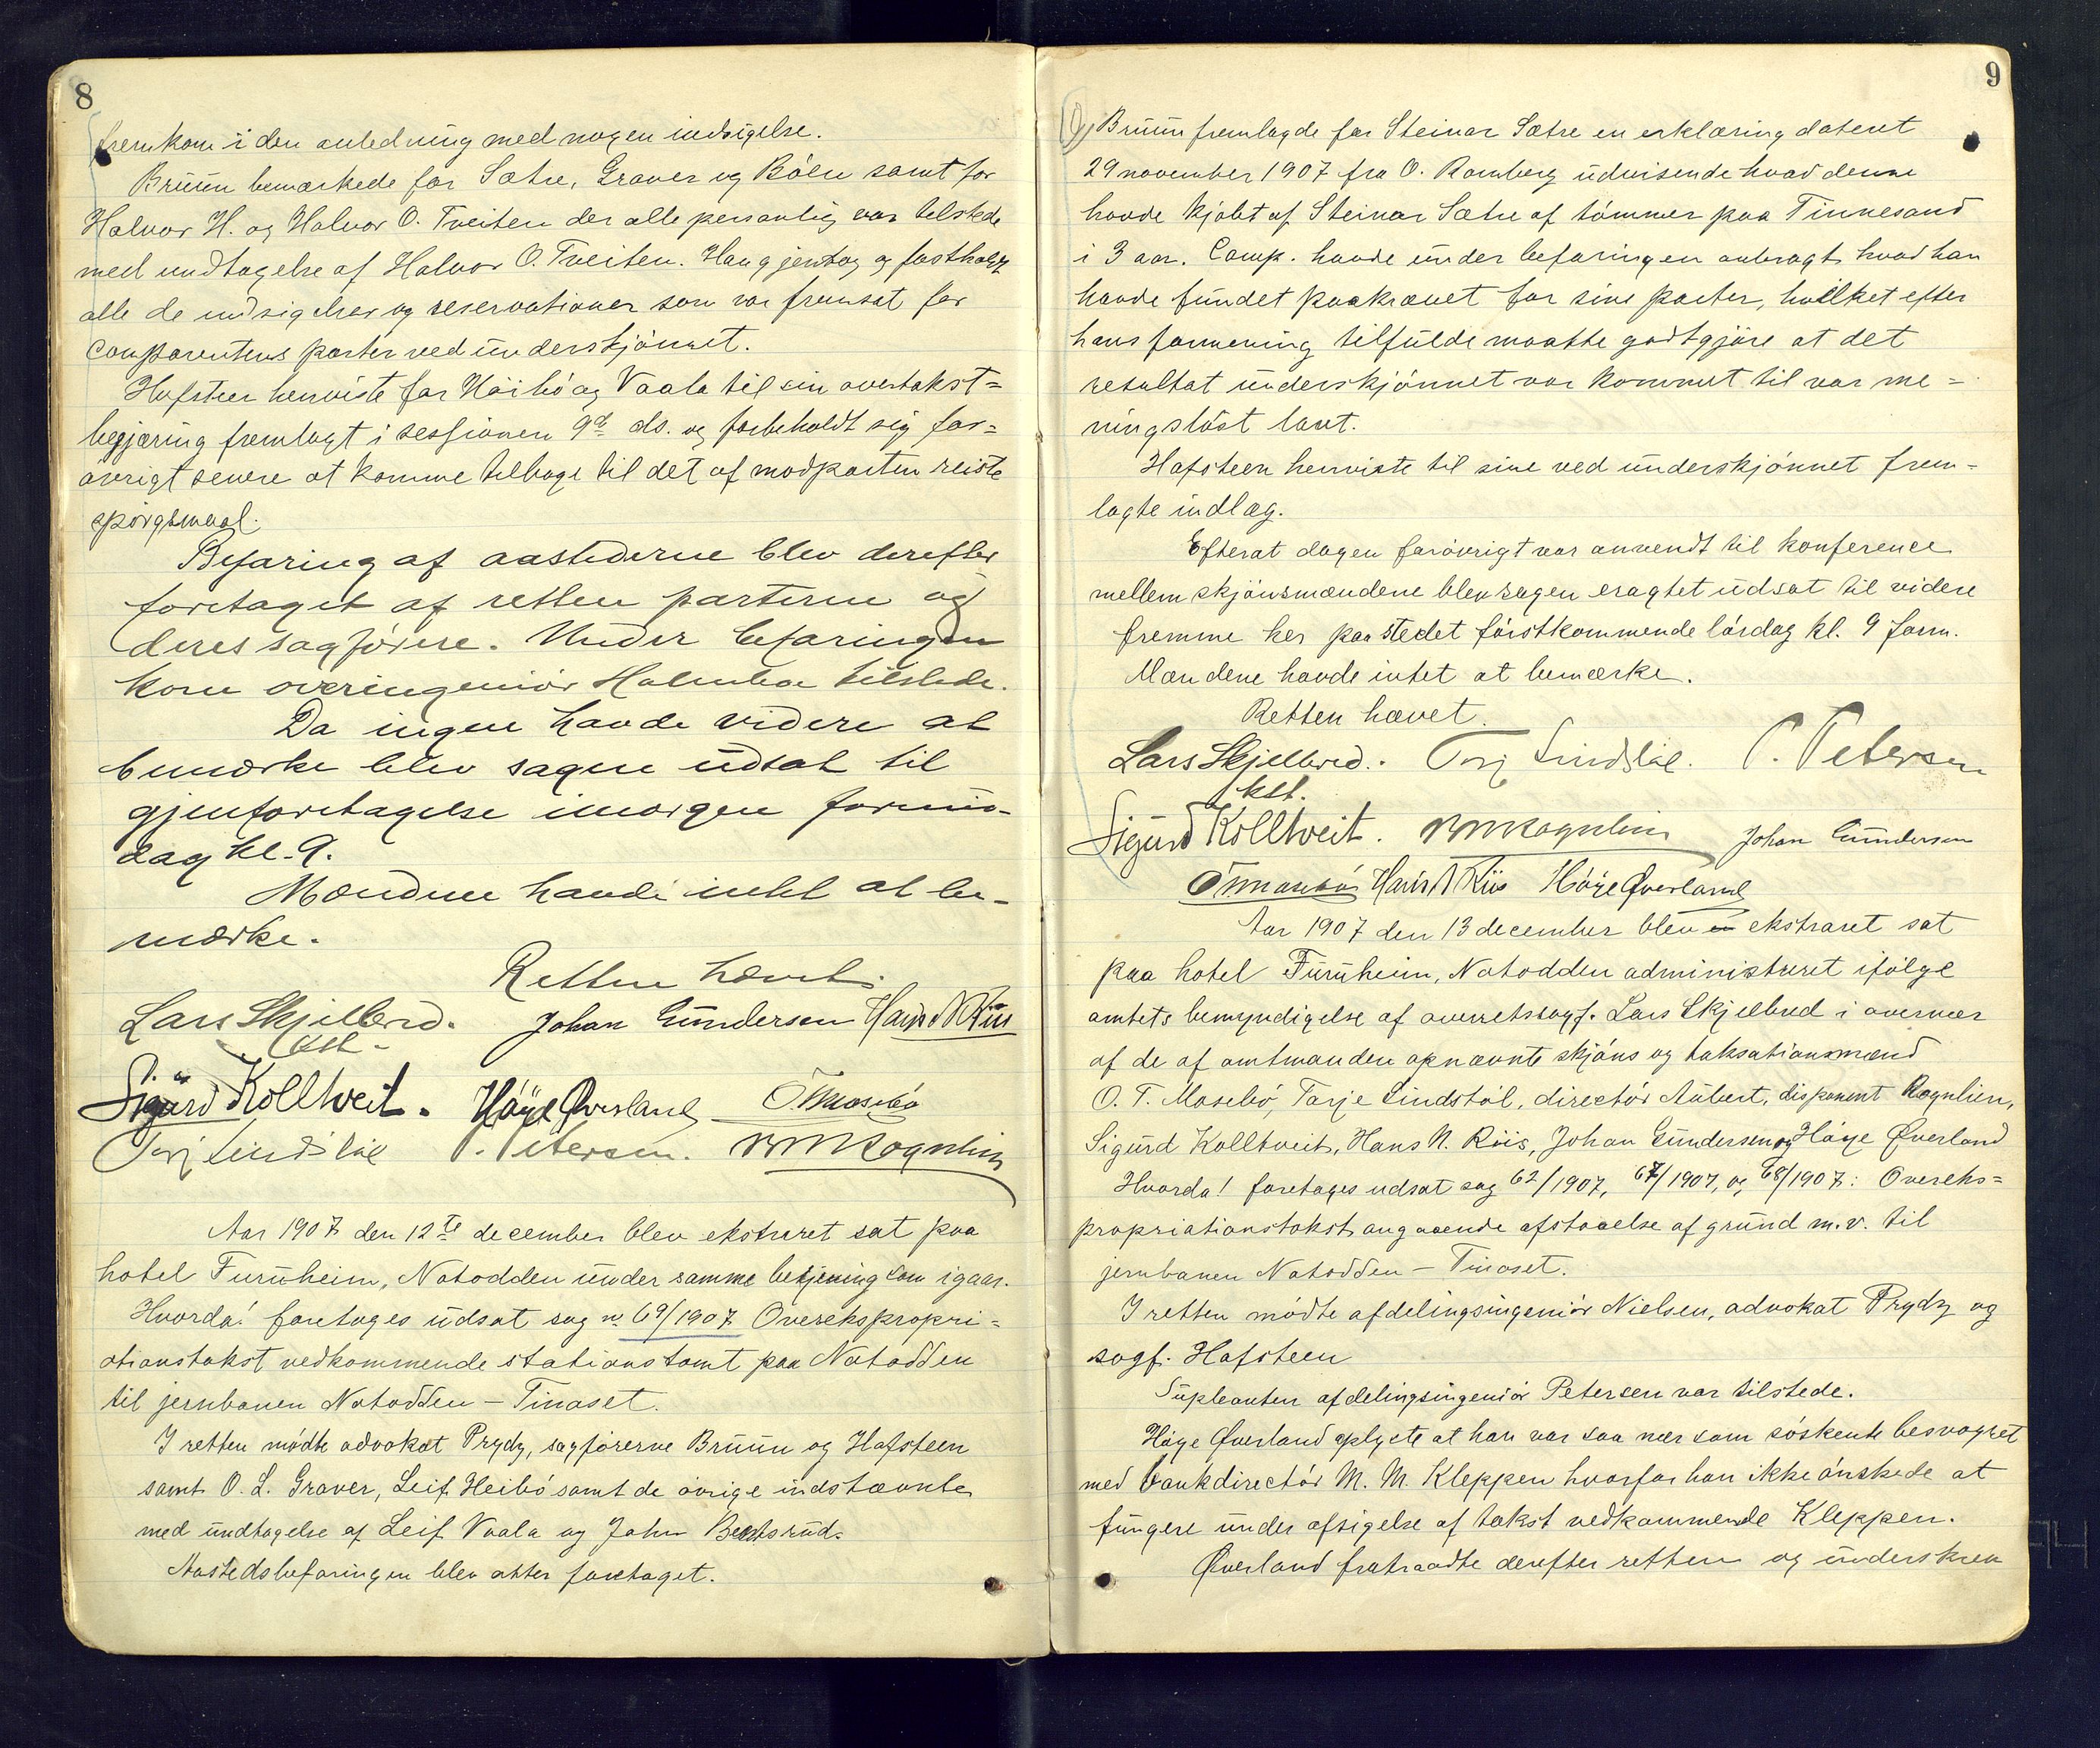 8
fremkom i den anledning med nogen indsigelse.
Bruun bemærkede for Sætre, Graver og Bólen samt for
Halvor H. og Halvor O. Tveiten der alle personlig var tilstede
med undtagelse af Halvor O. Tveiten. Han gjentog og fastholdt
alle de indsigelser og reservationer som var fremsat for
Comparentens parter ved underskjónnet.
Hafsteen henviste for Häibó og Vaala til sin overtakst=
begjæring fremlagt i sessionen 9d ds. og forbeholdt sig for=
óvrigt senere at komme tilbage til det af modparten reiste
spórgsmaal.
Befaring af aastederne blev derefter
foretaget af retten parterne og
deres sagfórere. Under befaringen
kom overingeniór Holmboe tilstede.
Da ingen havde videre at
bemærke blev sagen udsat til
gjenforetagelse imorgen formid-
dag kl. 9.
Mændene havde intet at be-
mærke.
Retten hævet.
Lars Skjelbred. Johan Gundersen Hans N Riis
kst.
Sigurd Kolltveit. Höye Øverland O.T. Mosebó
Torj Lindstöl P. Petersen. Rognlien
Aar 1907 den 12te december blev ekstraret sat paa
hotel Furuheim, Notodden under samme betjening som igaar.
Hvorda! foretages udsat sag no 69/1907 Overekspropri=
ationstakst vedkommende stationstomt paa Notodden
til jernbanen Notodden – Tinoset.
I retten mødte advokat Prydz, sagfórerne Bruun og Hafsteen
samt O. L. Graver, Leif Heibó samt de óvrige indstævnte
med undtagelse af Leif Vaala og John Bentsrud.
Aastedsbefaringen blev atter foretaget.
9
Bruun fremlagde for Steinar Sætre en erklæring dateret
29 november 1907 fra O. Romberg udvisende hvad denne
havde kjóbt af Steinar Sætre af tómmer paa Tinnesand
i 3 aar. Comp. havde under befaringen anbragt hvad han
havde fundet paakrævet for sine parter, hvilket efter
hans formening tilfulde maatte godtgjóre at det
resultat underskjónnet var kommet til var me=
ningslóst lavt.
Hafsteen henviste til sine ved underskjónnet frem-
lagte indlæg.
Efterat dagen foróvrigt var anvendt til konference
mellem skjónsmændene blev sagen eragtet udsat til videre
fremme her paa stedet fórstkommende lórdag kl. 9 form.
Mændene havde intet at bemærke.
Retten hævet.
Lars Skjelbred. Torj Lindstöl. P. Petersen
kst.
Sigurd Kolltveit. Rognlien Johan Gundersen
O.T. Mosebó Hans N Riis Höye Øverland
Aar 1907 den 13 december blev en ekstraret sat
paa hotel Furuheim, Notodden administreret ifólge
amtets bemyndigelse af overretssagf. Lars Skjelbred i overvær
af de af amtmanden opnævnte skjóns og taksationsmænd
O. T. Mosebó, Tarje Lindstól, directór Aubert, disponent Rognlien,
Sigurd Kolltveit, Hans N. Riis, Johan Gundersen og Höye Øverland
Hvorda! foretages udsat sag 62/1907, 67/1907, og 68/1907: Overeks=
propriationstakst angaaende afstaaelse af grund m.v. til
jernbanen Notodden – Tinoset.
I retten mødte afdelingsingeniór Nielsen, advokat Prydz og
sagf. Hafsteen
Supleanten afdelingsingeniór Petersen var tilstede.
Höye Øverland oplyste at han var saa nær som sóskende besvogret
med bankdirectór M. M. Kleppen hvorfor han ikke ónskede at
fungere under afsigelse af takst vedkommende Kleppen.
Øverland fratraadte derefter retten og underskrev